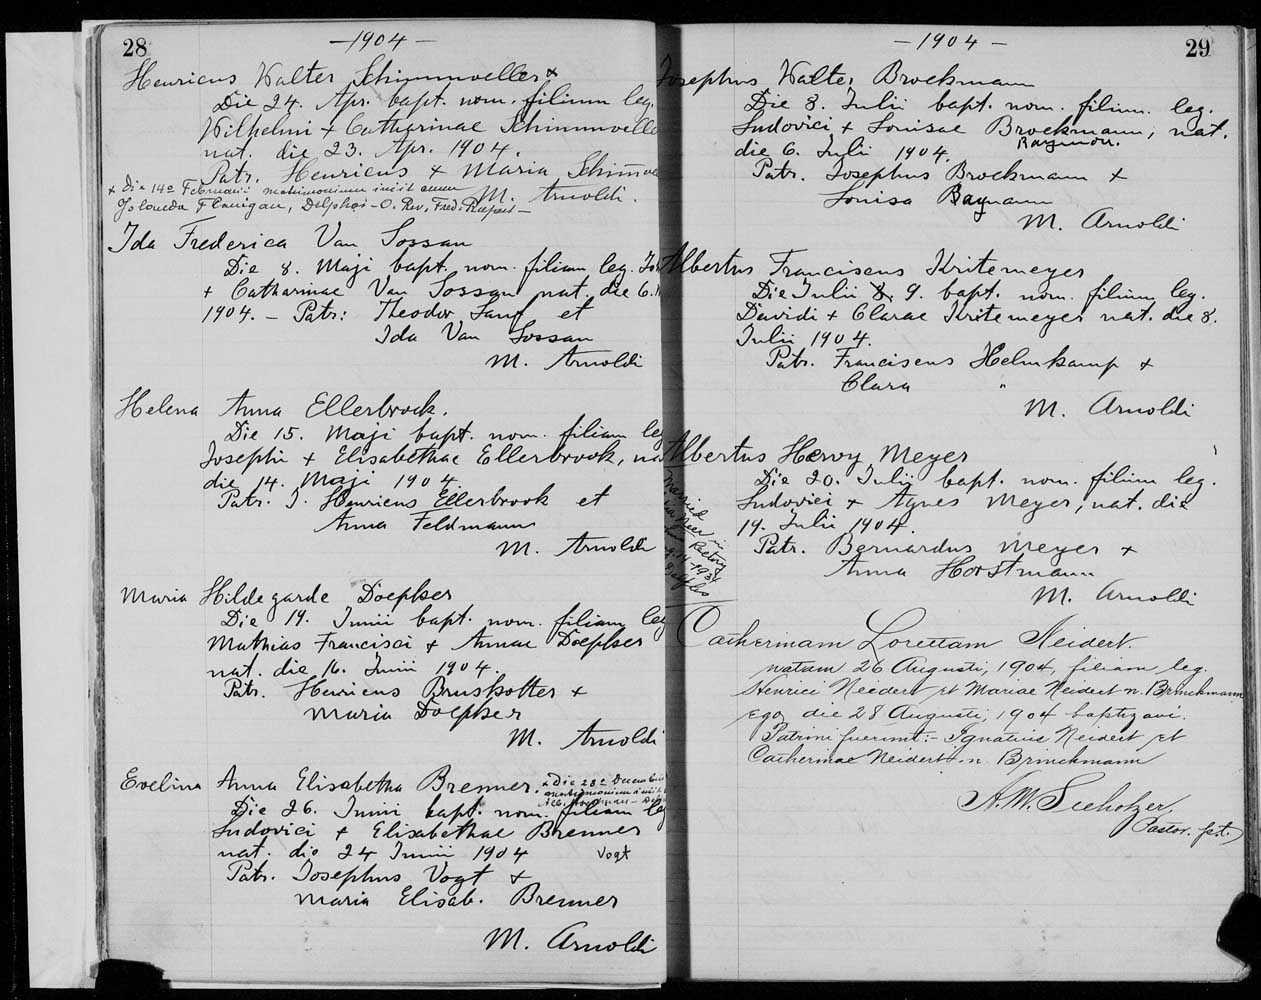 28
—1904—
Henricus Walter Schimmoeller x
Die 24. Apr. bapt. nom. filium leg.
Wilhelmi + Catharinae Schimmoelle
nat. die 23. Apr. 1904.
Patr. Henricus + Maria Schim̄oe
M. Arnoldi.
x Die 14a Februarii matrimonium iniit cum
Yolanda Flanigan, Delphos - O. Rev. Fred.
Ida Frederica Van Sossan
Die 8. Maji bapt. nom. filiam leg.
+ Catharinae Van Sossan nat. die 6.
1904. — Patr: Theodor Sang et
Ida Van Sossan
M. Arnoldi
Helena Anna Ellerbrock.
Die 15. Maji bapt. nom. filiam leg
Josephi + Elisabethae Ellerbrook, na
die 14. Maji 1904
Patr. J. Henricus Ellerbrook et
Anna Feldmann
M. Arnoldi
Maria Hildegarde Doepker
Die 19. Junii bapt. nom. filiam leg
Mathias Francisci + Annae Doepker
nat. die 16. Junii 1904.
Patr. Henricus Bruskotter +
Maria Doepker
M. Arnoldi
Evelina Anna Elisabetha Brenner. x Die 28a
matrimonium iniit
Die 26. Junii bapt. nom. filiam leg
Ludovici + Elisabethae Brenner
nat. die 24 Junii 1904 Vogt
Patr. Josephus Vogt +
Maria Elisab. Brenner
M. Arnoldi
—1904—
29
Josephus Walter Brockmann
Die 8. Julii bapt. nom. filium. leg.
Ludovici + Louisae Brockmann, nat.
die 6. Juli 1904.
Patr. Josephus Brockmann +
Louisa Baymann
M. Arnoldi
Albertus Franciscus Kritemeyer
Die Julii 8. 9. bapt. nom. filium leg.
Davidi + Clarae Kritemeyer nat. die 8.
Julii 1904.
Patr. Franciscus Helmkamp +
Clara "
M. Arnoldi
Albertus Hervy Meyer
Die 20. Julii bapt. nom. filium leg.
Ludovici + Agnes Meyer, nat. die
19. Julii 1904.
Patr. Bernardus Meyer +
Anna Horstmann
M. Arnoldi
Married
in
Rectory
Catherinam Lorettam Neidert.
natam 26 Augusti, 1904, filiam leg.
Henrici Neidert et Mariae Neidert n. Brinckmann
Ego die 28 Augusti, 1904 baptizavi.
Patrini fuerunt:— Ignatius Neidert et
Catherinae Neidert n. Brinckmann
A. W. Seeholzer.
Pastor. pt.